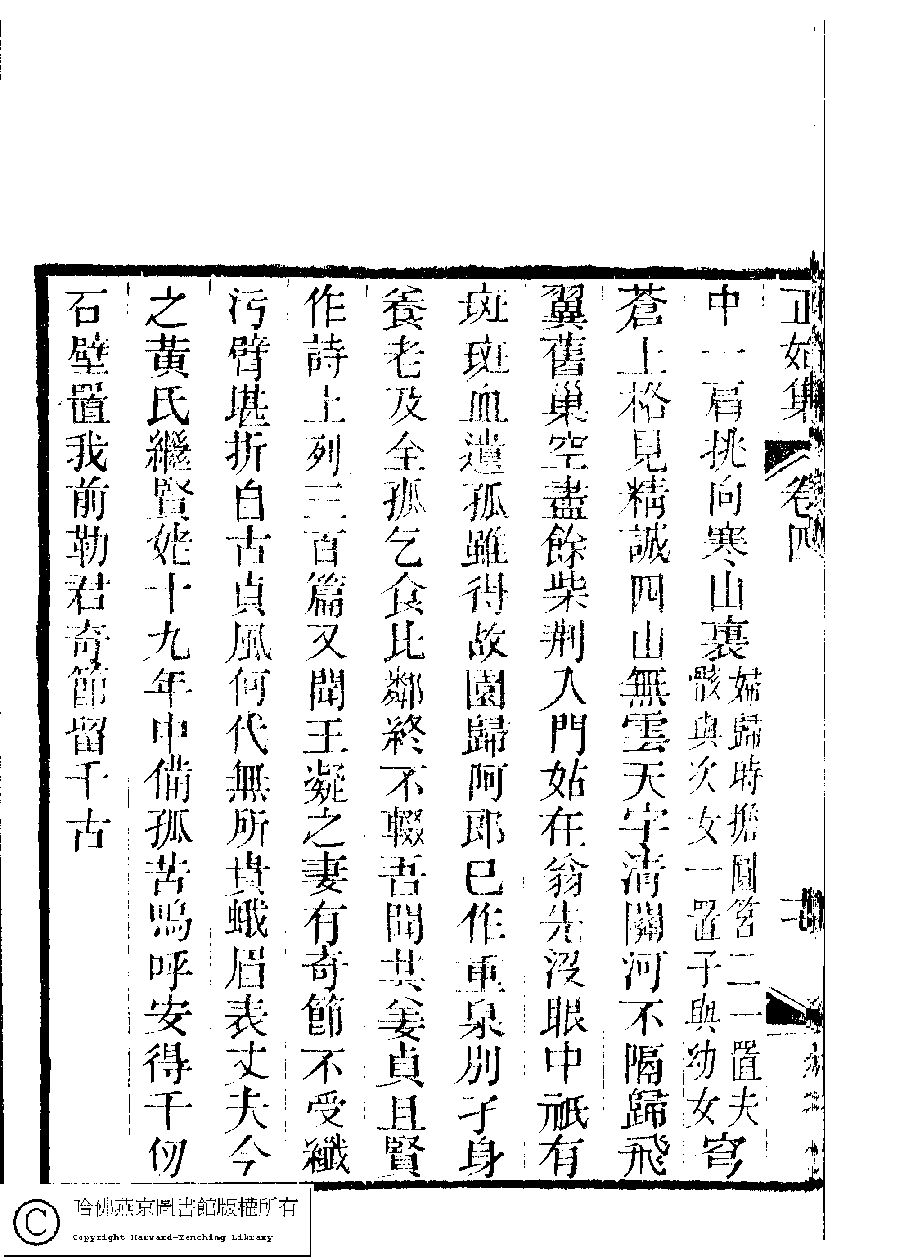 正始集 卷四
中一肩挑向寒山裏婦歸時擔圓筥二一置夫骸與次女一置子與幼女穹
蒼上格見精誠四山無雲天宇清關河不隔歸飛
翼舊巢空盡餘柴荆入門姑在翁先沒眼中祇有
斑斑血遺孤雖得故園歸阿郎已作重泉別孑身
養老及全孤乞食比鄰終不輟吾聞共姜貞且賢
作詩上列三百篇又聞王凝之妻有奇節不受纖
污臂堪折自古貞風何代無所貴蛾眉表丈夫今
之黃氏繼賢姥十九年中備孤苦嗚呼安得千仞
石壁置我前勒君奇節留千古
哈佛燕京圖書館版權所有
Copyright Harvard-Yenching Library